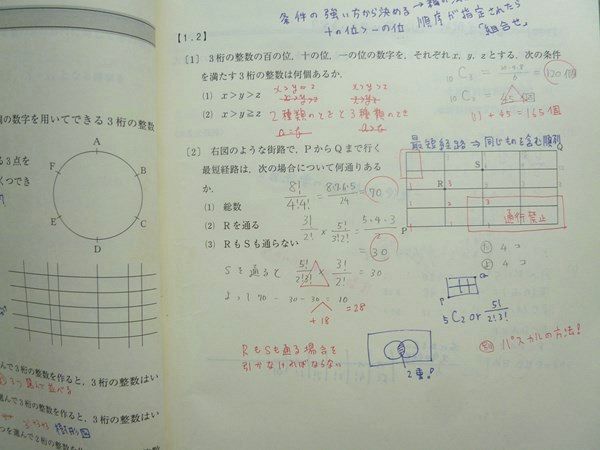 条件の強い方から決める→
十の位>一の位 順序が指定されたら
「組合せ」
【1.2】
[1] 3桁の整数の百の位,十の位,一の位の数字を,それぞれx, y, zとする.次の条件
を満たす3桁の整数は何個あるか.
(1) x>y>z
(2) x>y≧z
x>y=z x>y>z
2種類のときと3種類のとき
10C3 = 10·9·8/6 = 120個
45個
+45=165個
[2] 右図のような街路で,PからQまで行く
最短経路は,次の場合について何通りある
か.
(1) 総数
(2) Rを通る
(3) RもSも通らない
8!/4!4! = 8·7·6·5/24 = 70
3!/2! × 5!/3!2! = 5·4·3/2
30
Sを通ると 5!/2!3! × 3!/2! = 30
よって 70-30-30=10
+18 =28
RもSも通る場合を
引かなければならない
2重!
最短経路 ⇒同じものを含む順列
Q
S
R
P
通行禁止
4コ
4コ
5C2 or 5!/2!3!
パスカルの方法!
の数字を用いてできる3桁の整数
る3点を
くつでき
A
B
C
D
E
F
んで3桁の整数を作ると,3桁の整数はい
3つ選んで並べる
を選んで3桁の整数を作ると,3桁の整数はい
樹形図
つを選んで2桁の整数を